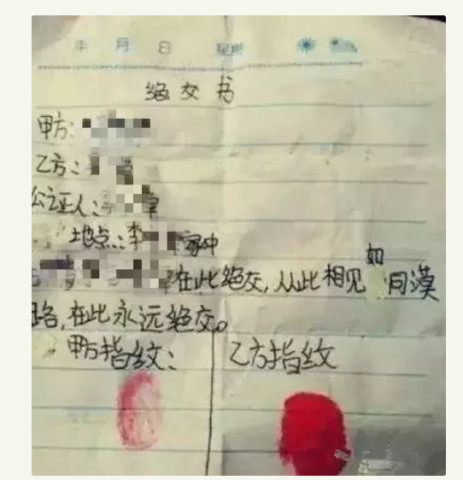 年 月 日 星期
绝交书
甲方:
乙方:
公证人:李
地点:李 家中
在此绝交,从此相见如同漠
路,在此永远绝交。
甲方指纹: 乙方指纹